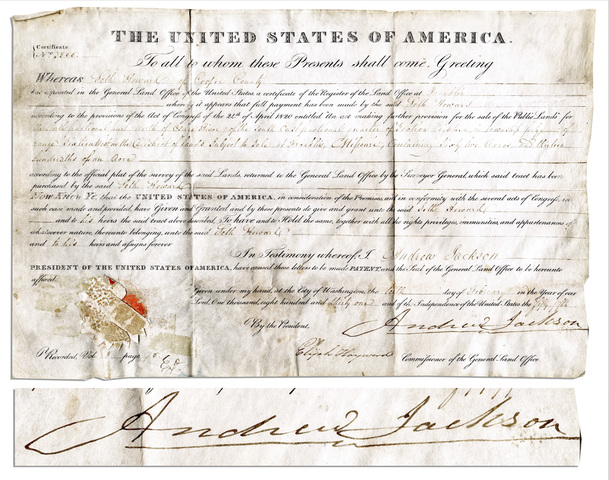 THE UNITED STATES OF AMERICA.
Certificate
No.
To all to whom these Presents shall come, Greeting
Whereas Howard of Cooper County
deposited in the General Land Office of the United States a certificate of the Register of the Land Office at
whereby it appears that full payment has been made by the said Howard
according to the provisions of the Act of Congress of the 24th of April 1820 entitled An act making further provision for the sale of the Public Lands for
of the South East quarter of
range in the District of Lands Subject to Sale at Franklin Missouri, Containing Acres
hundredths of an Acre
according to the official plat of the survey of the said Lands, returned to the General Land Office by the Surveyor General, which said tract has been
purchased by the said Howard
Now Know Ye, that the UNITED STATES OF AMERICA, in consideration of the Premises, and in conformity with the several acts of Congress, in
such case made and provided, have Given and Granted, and by these presents do give and grant unto the said Howard
and to his heirs the said tract above described, To have and to Hold the same, together with all the rights, privileges, immunities, and appurtenances of
whatsoever nature, thereunto belonging, unto the said Howard
and to his heirs and assigns forever
In Testimony whereof, I Andrew Jackson
PRESIDENT OF THE UNITED STATES OF AMERICA, have caused these letters to be made PATENT, and the Seal of the General Land Office to be hereunto
affixed.
Given under my hand, at the City of Washington, the day of in the Year of our
Lord, One thousand, eight hundred and thirty one and of the Independence of the United States the fifty fifth
By the President.
Andrew Jackson
Elijah Hayward Commissioner of the General Land Office
Recorded, Vol. page
Andrew Jackson